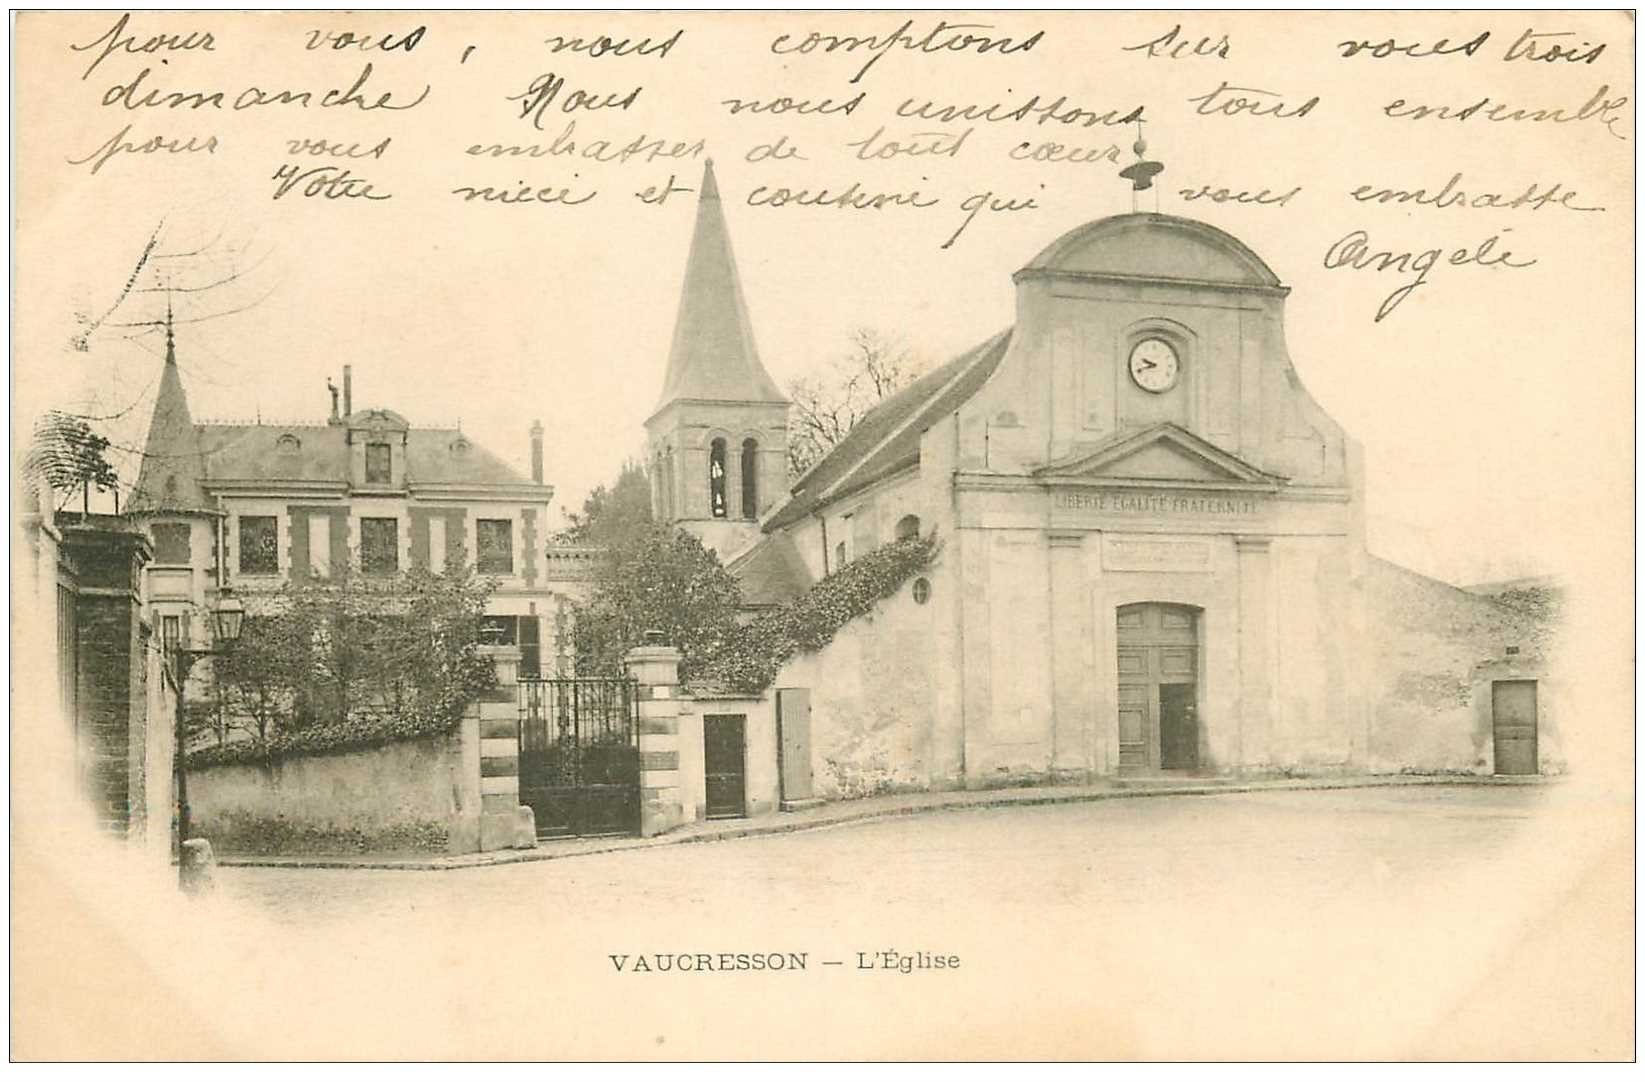 pour vous, nous comptons sur vous trois
dimanche Nous nous unissons tous ensemble
pour vous embrasser de tout cœur
Votre niece et cousine qui vous embrasse
Angele
LIBERTÉ ÉGALITÉ FRATERNITÉ
VAUCRESSON — L'Église